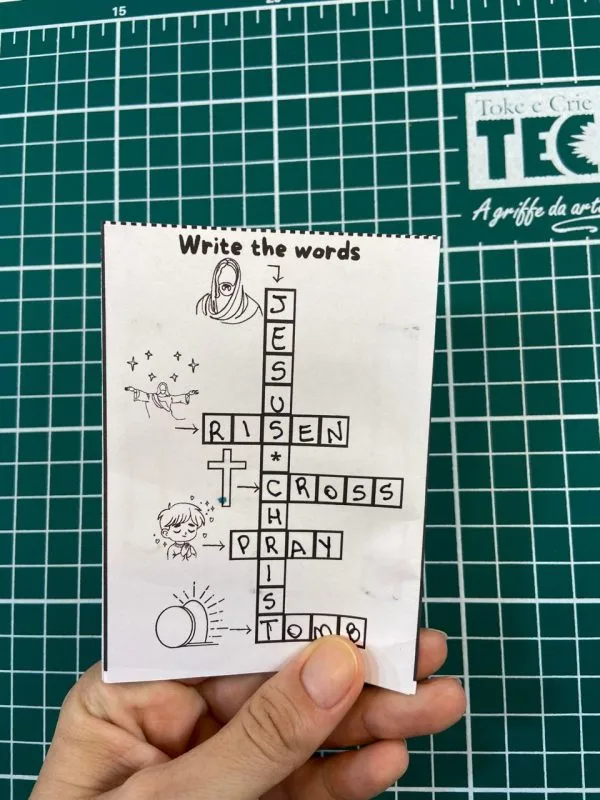 15
Toke e Crie
TEC
A griffe da arte
Write the words
J
E
S
U
RISEN
*
CROSS
H
PRAY
I
S
TOMB